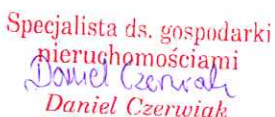 Specjalista ds. gospodarki
nieruchomościami
Daniel Czerwiak
Daniel Czerwiak